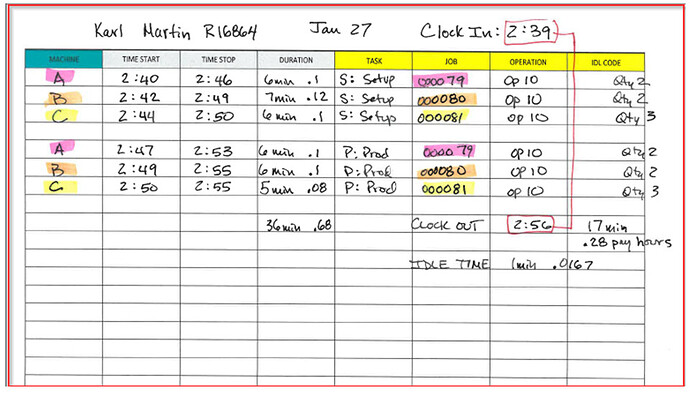 Karl Martin R16864 Jan 27 Clock In: 2:39
MACHINE TIME START TIME STOP DURATION TASK JOB OPERATION IDL CODE
A 2:40 2:46 6min .1 S: Setup 000079 Op 10 Qty 2
B 2:42 2:49 7min .12 S: Setup 000080 Op 10 Qty 2
C 2:44 2:50 6min .1 S: Setup 000081 Op 10 Qty 3
A 2:47 2:53 6min .1 P: Prod 000079 Op 10 Qty 2
B 2:49 2:55 6min .1 P: Prod 000080 Op 10 Qty 2
C 2:50 2:55 5min .08 P: Prod 000081 Op 10 Qty 3
36min .68 CLOCK OUT 2:56 17min
.28 pay hours
IDLE TIME 1min .0167